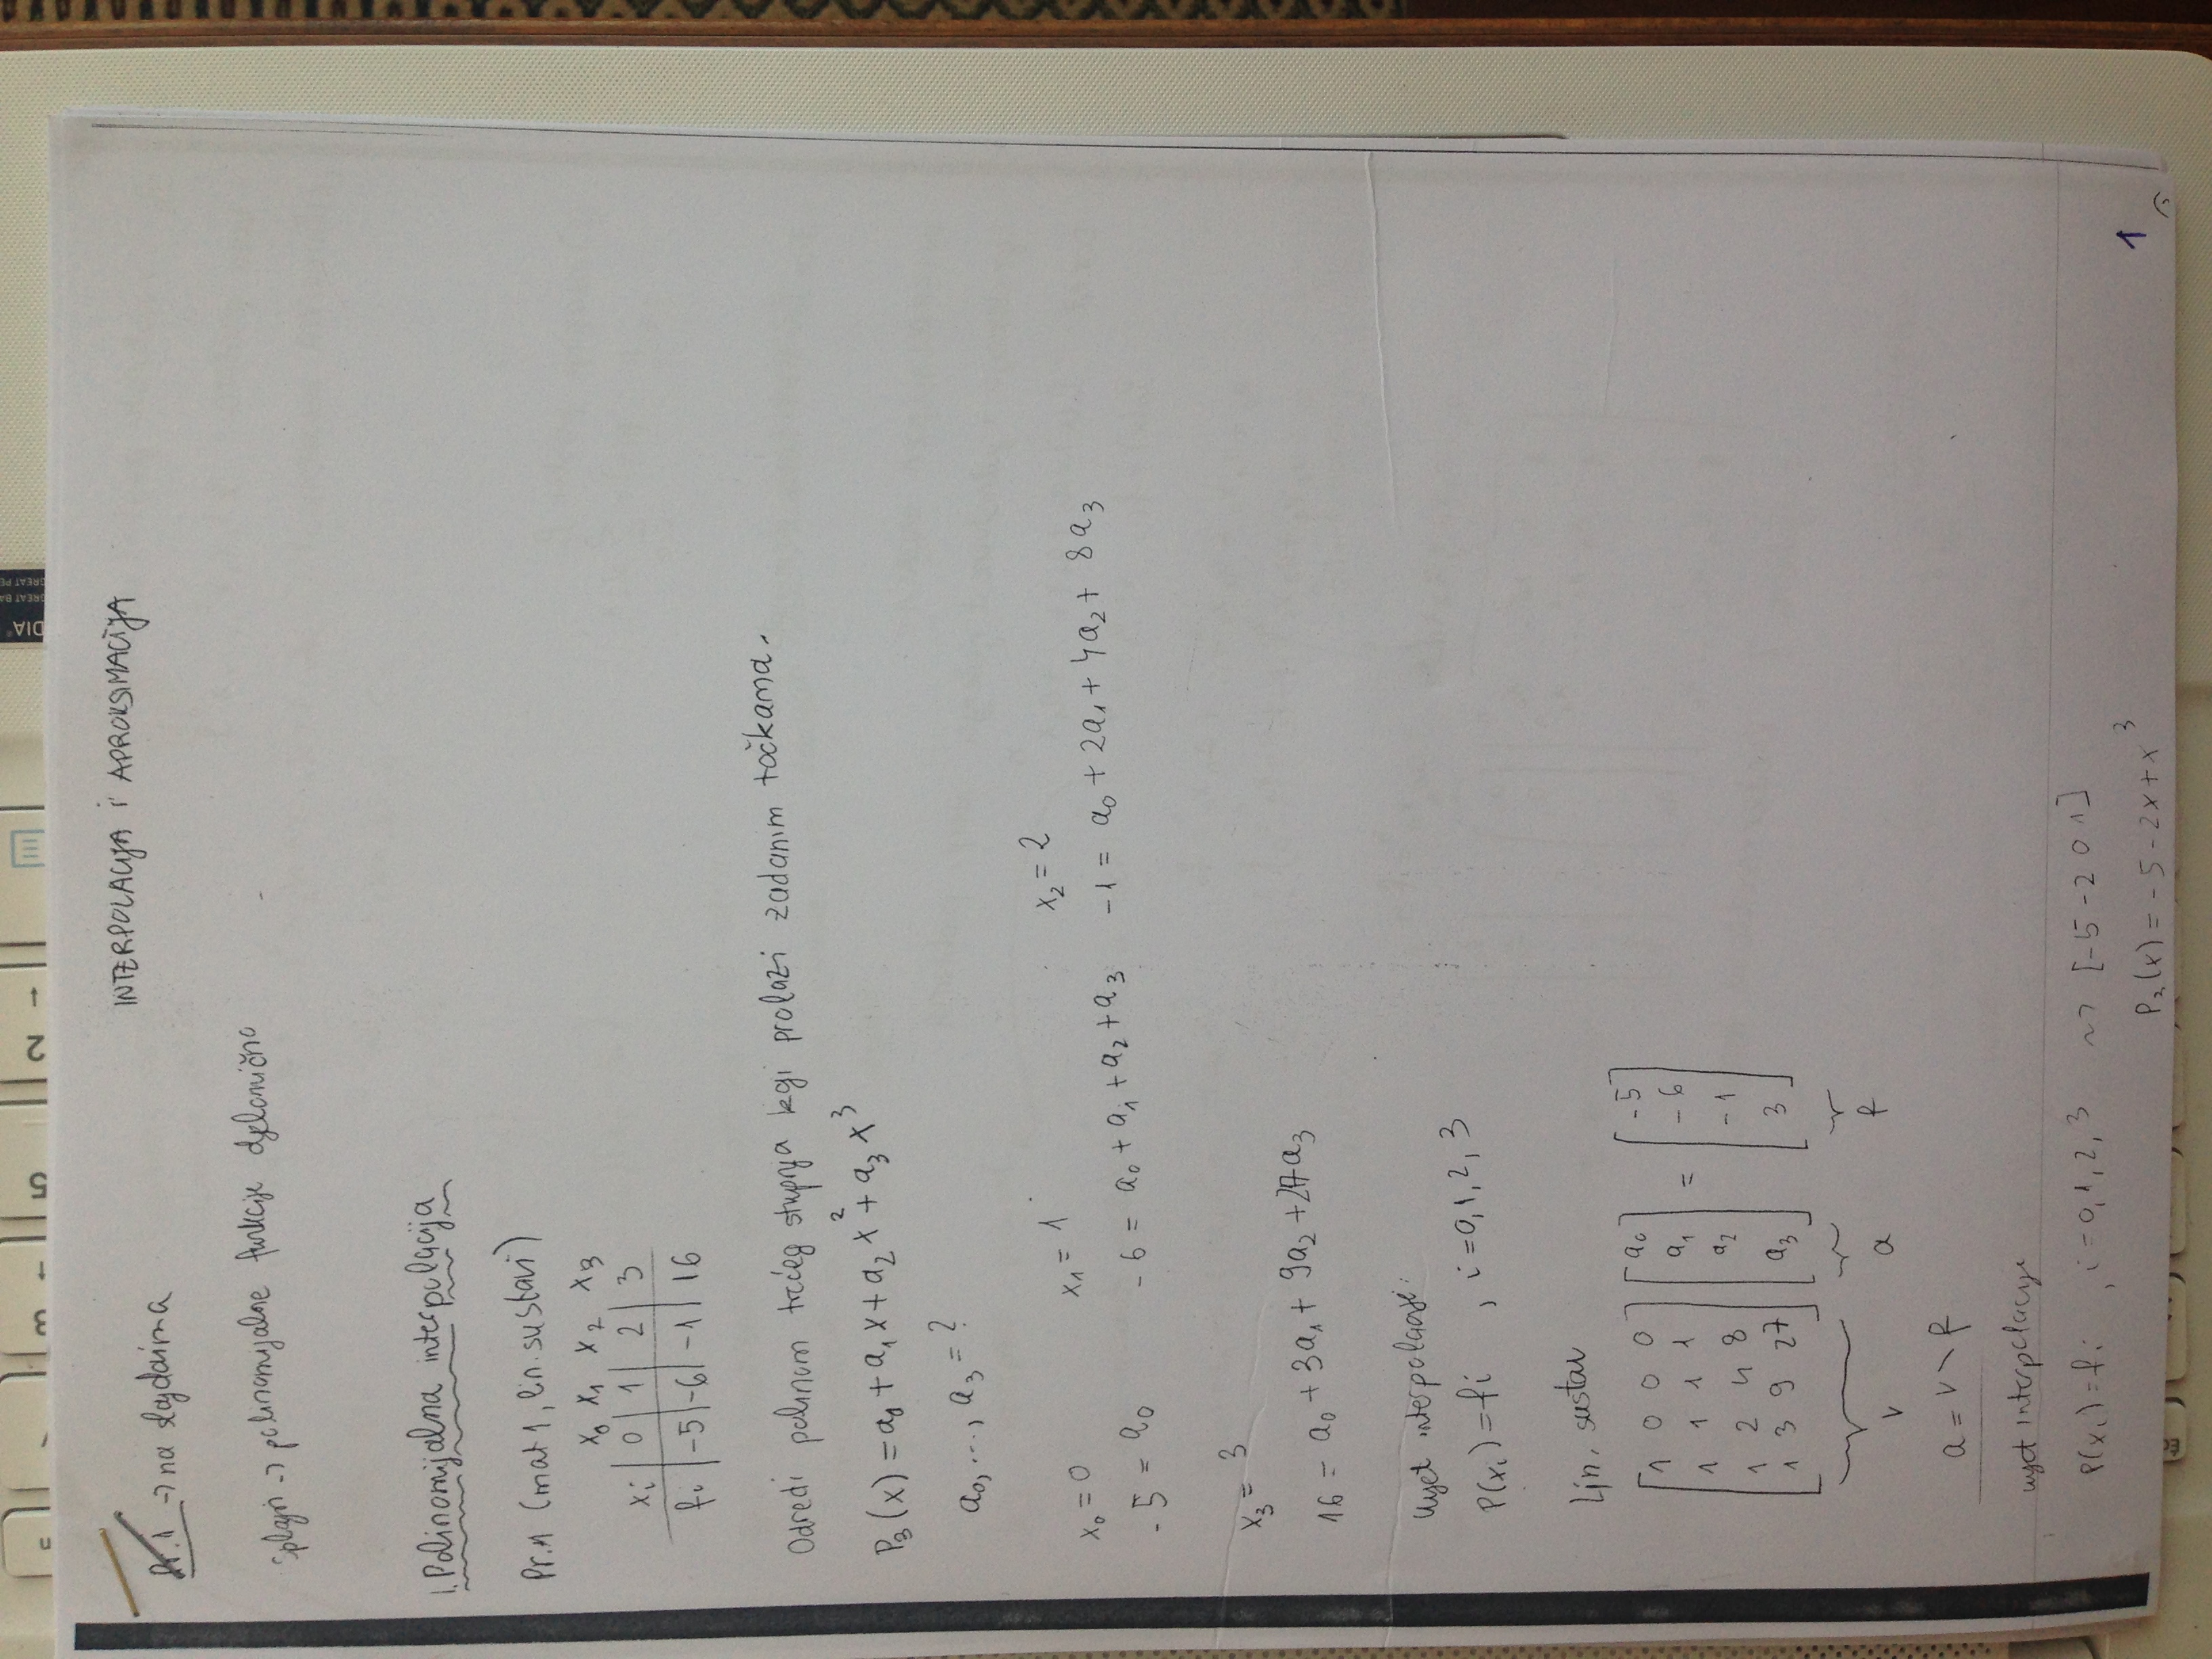 INTERPOLACIJA i APROKSIMACIJA
Pr.1 -> na slajdaima
splajn -> polinomijalne funkcije djelomično
1. Polinomijalna interpolacija
Pr.1 (mat 1, lin. sustavi)
x₀ x₁ x₂ x₃
xᵢ | 0 | 1 | 2 | 3
fᵢ | -5 | -6 | -1 | 16
Odredi polinom trećeg stupnja koji prolazi zadanim točkama.
P₃(x) = a₀ + a₁x + a₂x² + a₃x³
a₀, ..., a₃ = ?
x₀ = 0 x₁ = 1 x₂ = 2
-5 = a₀ -6 = a₀ + a₁ + a₂ + a₃ -1 = a₀ + 2a₁ + 4a₂ + 8a₃
x₃ = 3
16 = a₀ + 3a₁ + 9a₂ + 27a₃
Uvjet interpolacije:
P(xᵢ) = fᵢ , i = 0, 1, 2, 3
Lin. sustav
[1 0 0 0] [a₀] [-5]
[1 1 1 1] [a₁] = [-6]
[1 2 4 8] [a₂] [-1]
[1 3 9 27] [a₃] [3]
V a f
a = V \ f
uvjet interpolacije
P(xᵢ) = fᵢ , i = 0, 1, 2, 3 ~> [-5 -2 0 1]
P₃(x) = -5 - 2x + x³
1
3
5
2
DIA
GREAT BA
GREAT PE